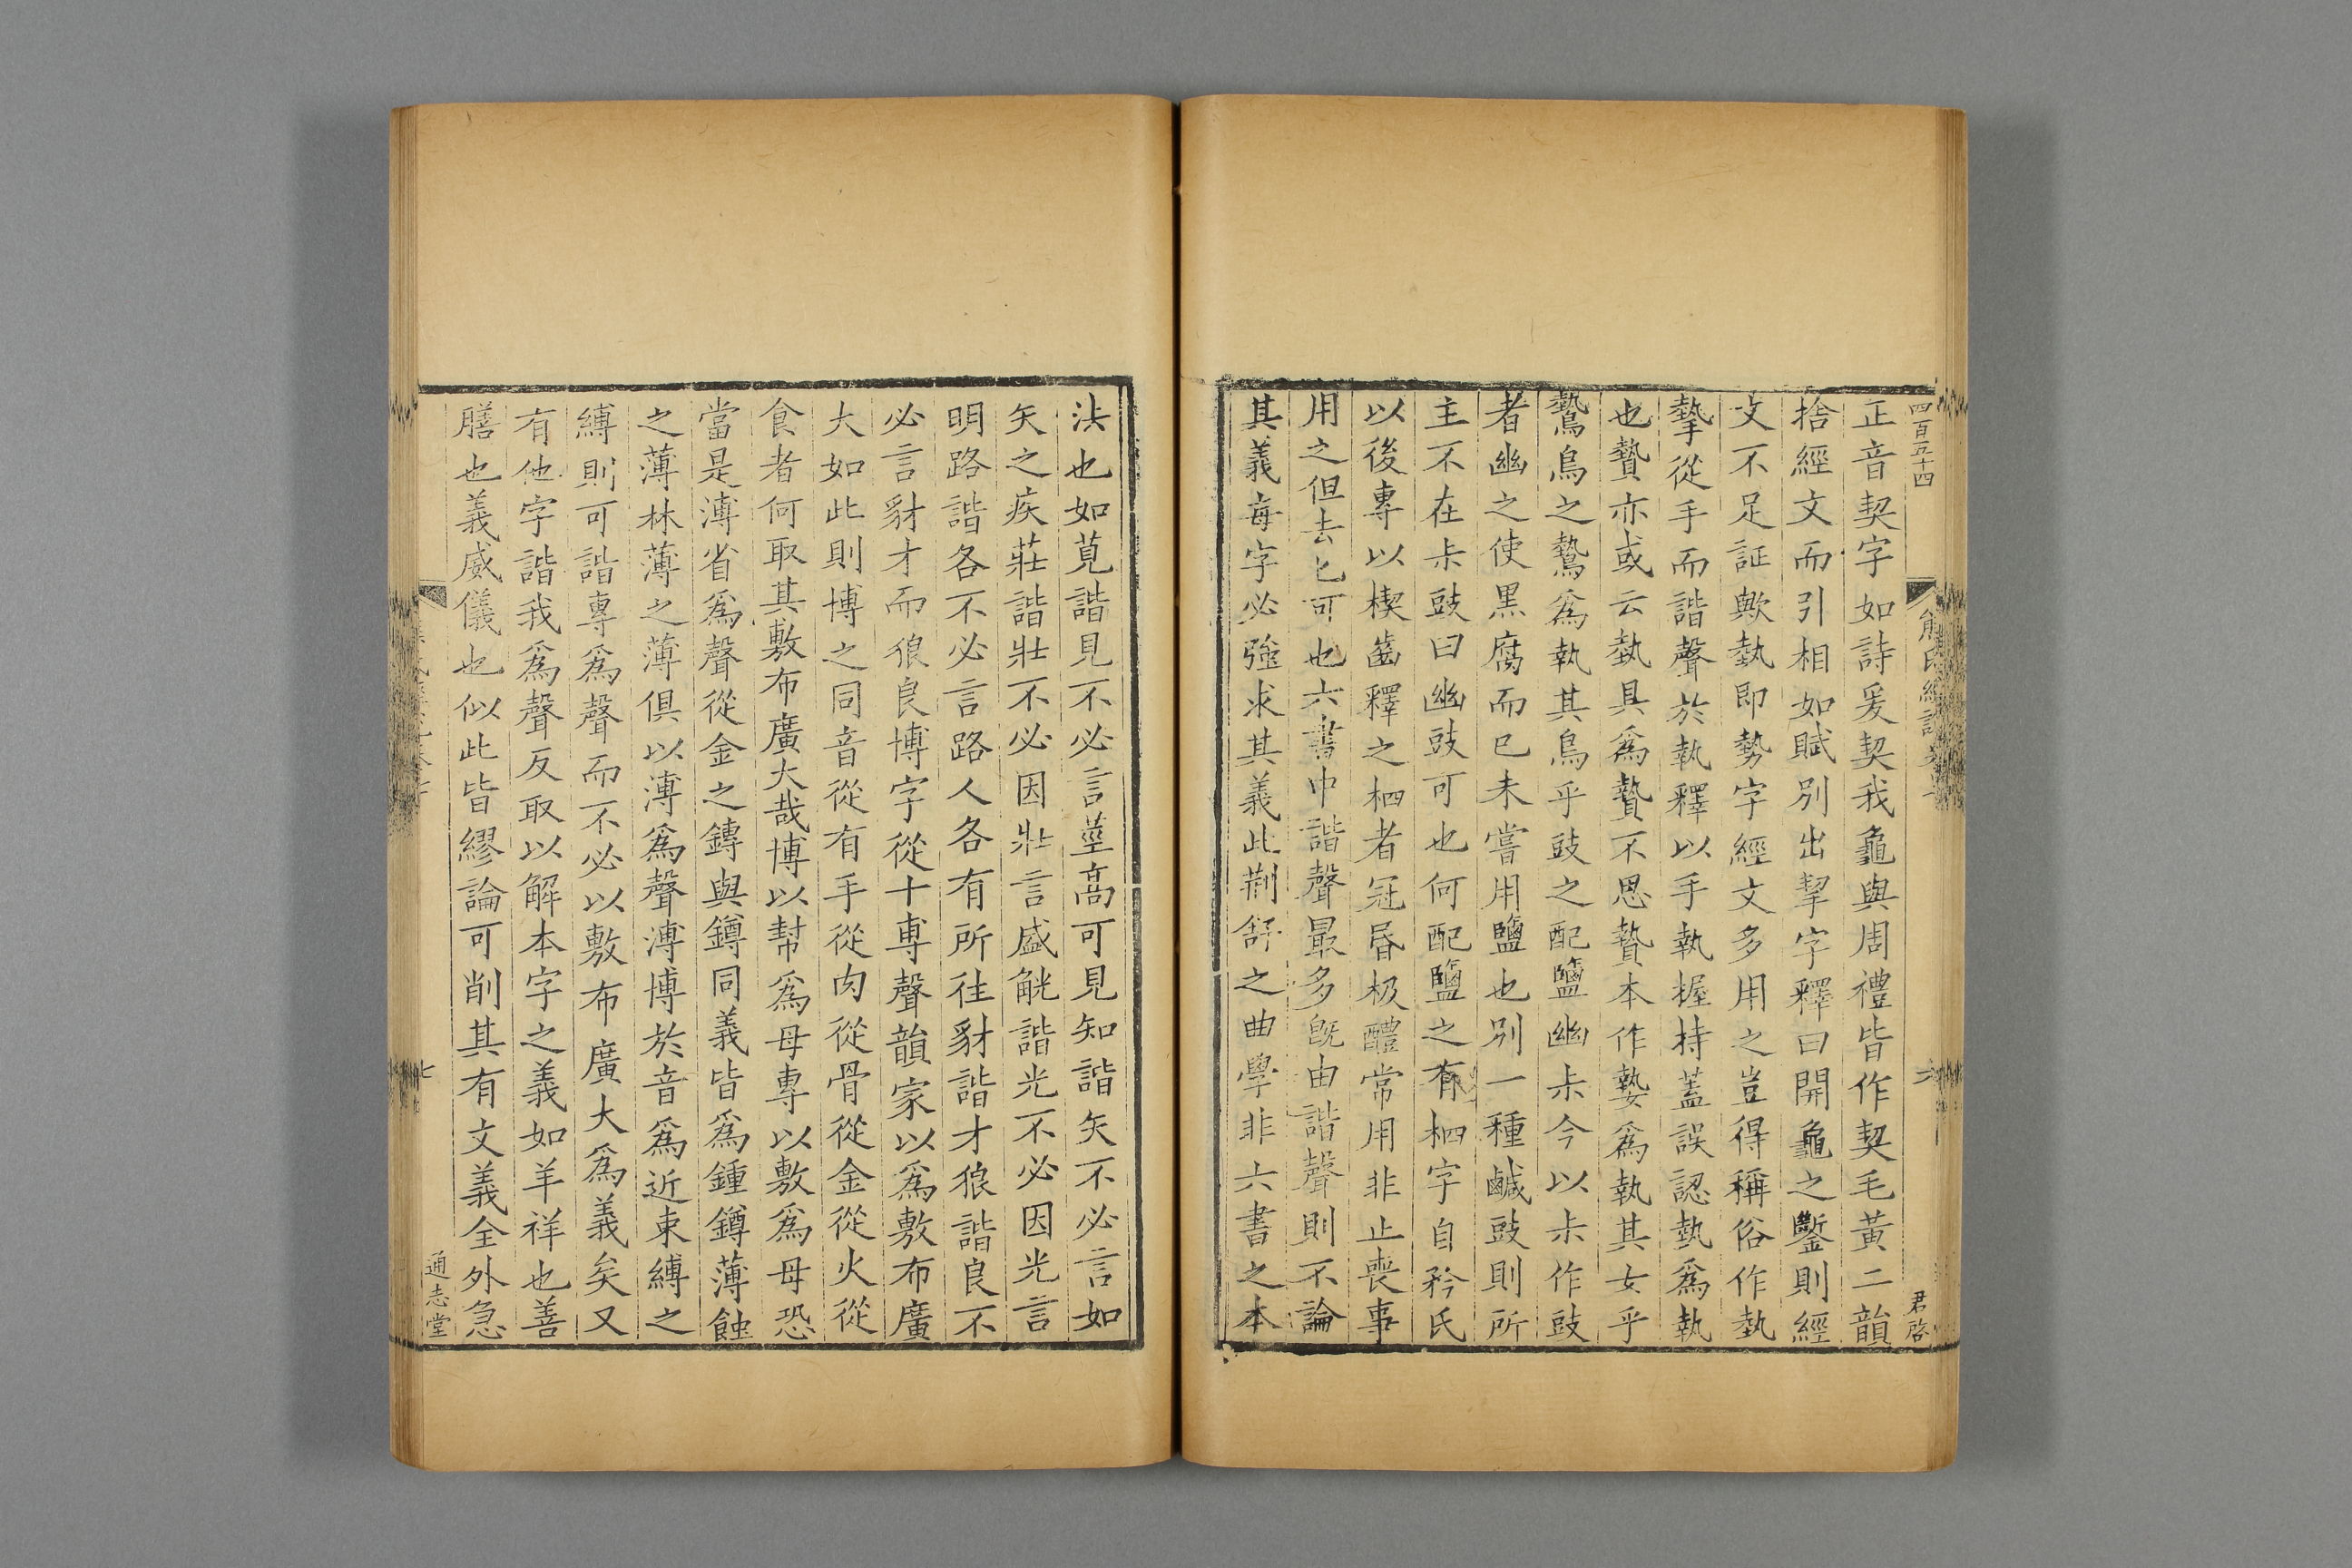 四百五十四
熊氏經說
六
君啓
正音契字如詩爰契我龜與周禮皆作契毛黃二韻
捨經文而引相如賦別出挈字釋曰開龜之鑿則經
文不足証歟埶即勢字經文多用之豈得稱俗作埶
摯從手而諧聲於執釋以手執握持蓋誤認埶爲執
也贄亦或云埶具爲贄不思贄本作㜘爲執其女乎
鷙鳥之鷙爲執其鳥乎豉之配鹽幽尗今以尗作豉
者幽之使黑腐而已未嘗用鹽也別一種鹹豉則所
主不在尗豉曰幽豉可也何配鹽之有柶字自矜氏
以後專以楔齒釋之柶者冠昏极醴常用非止喪事
用之但去匕可也六書中諧聲最多旣由諧聲則不論
其義每字必強求其義此荆舒之曲學非六書之本
法也如莧諧見不必言莖高可見知諧矢不必言如
矢之疾莊諧壯不必因壯言盛觥諧光不必因光言
明路諧各不必言路人各有所往豺諧才狼諧良不
必言豺才而狼良博字從十専聲韻家以爲敷布廣
大如此則博之同音從有手從肉從骨從金從火從
食者何取其敷布廣大哉博以幇爲母專以敷爲母恐
當是溥省爲聲從金之鎛與鑮同義皆爲鍾鑮薄蝕
之薄林薄之薄俱以溥爲聲溥博於音爲近束縛之
縛則可諧專爲聲而不必以敷布廣大爲義矣又
有他字諧我爲聲反取以解本字之義如羊祥也善
膳也義威儀也似此皆繆論可削其有文義全外急
七
通志堂